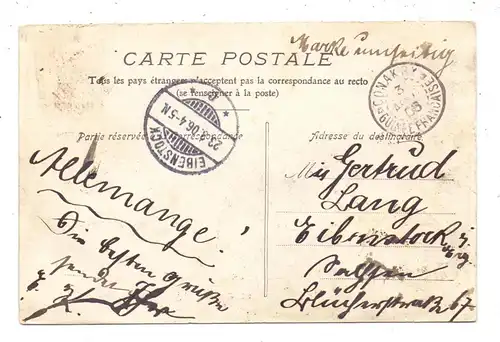 Marke umseitig
CARTE POSTALE
Tous les pays étrangers n'acceptent pas la correspondance au recto
(se renseigner à la poste)
CONAKRY
GUINÉE FRANÇAISE
EIBENSTOCK
22. 06. 4-5 N.
Partie réservée à la correspondance
Adresse du destinataire
Allemange!
Die besten Grüße
sendet
Miß Gertrud
Lang
Eibenstock i. Erzg.
Sachsen
Blücherstraße 67